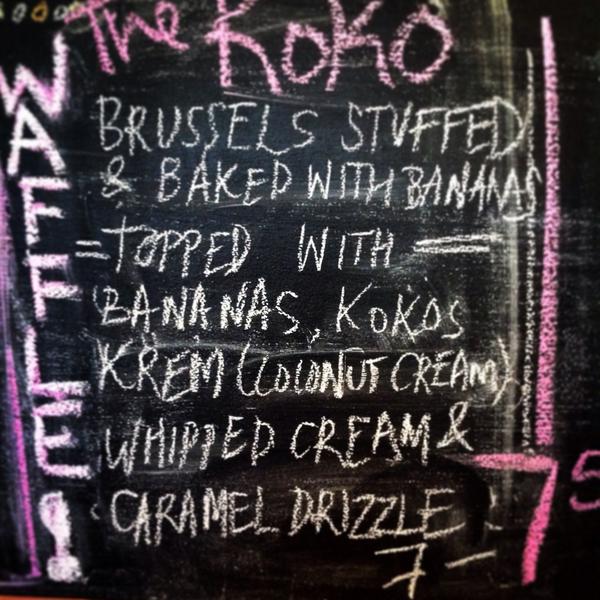 The KoKo
WAFFLE!
BRUSSELS STUFFED
& BAKED WITH BANANAS
= TOPPED WITH =
BANANAS, KOKOS
KREM (COCONUT CREAM)
WHIPPED CREAM &
CARAMEL DRIZZLE
7-
75